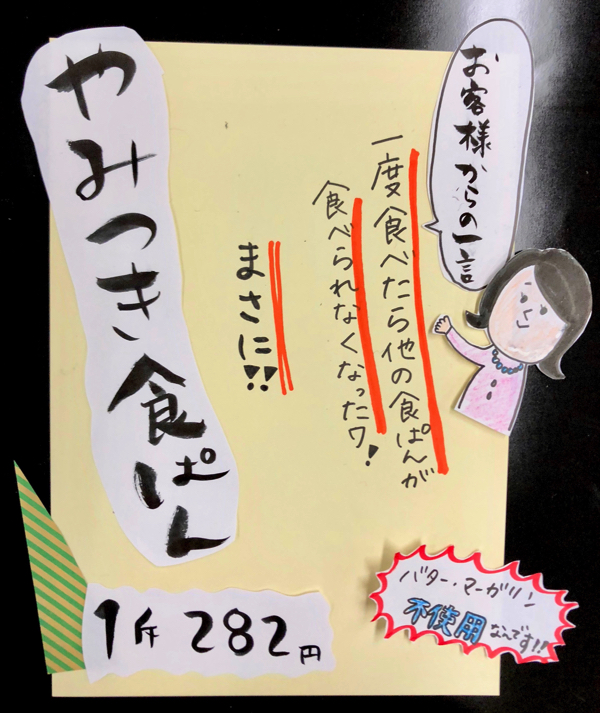 お客様からの一言
一度食べたら他の食ぱんが
食べられなくなったワ!
まさに!!
やみつき食ぱん
1斤 282円
バター・マーガリン
不使用なんです!!